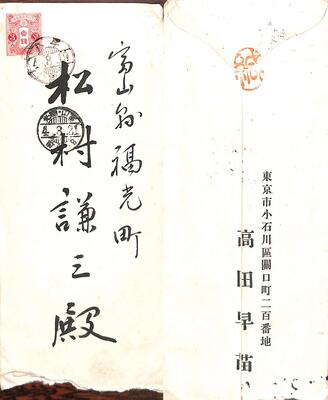 富山縣福光町
松村謙三殿
東京市小石川區關口町二百番地
高田早苗